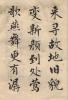 来寻故地旧貌
变新颜到处莺
歌燕舞更有潺